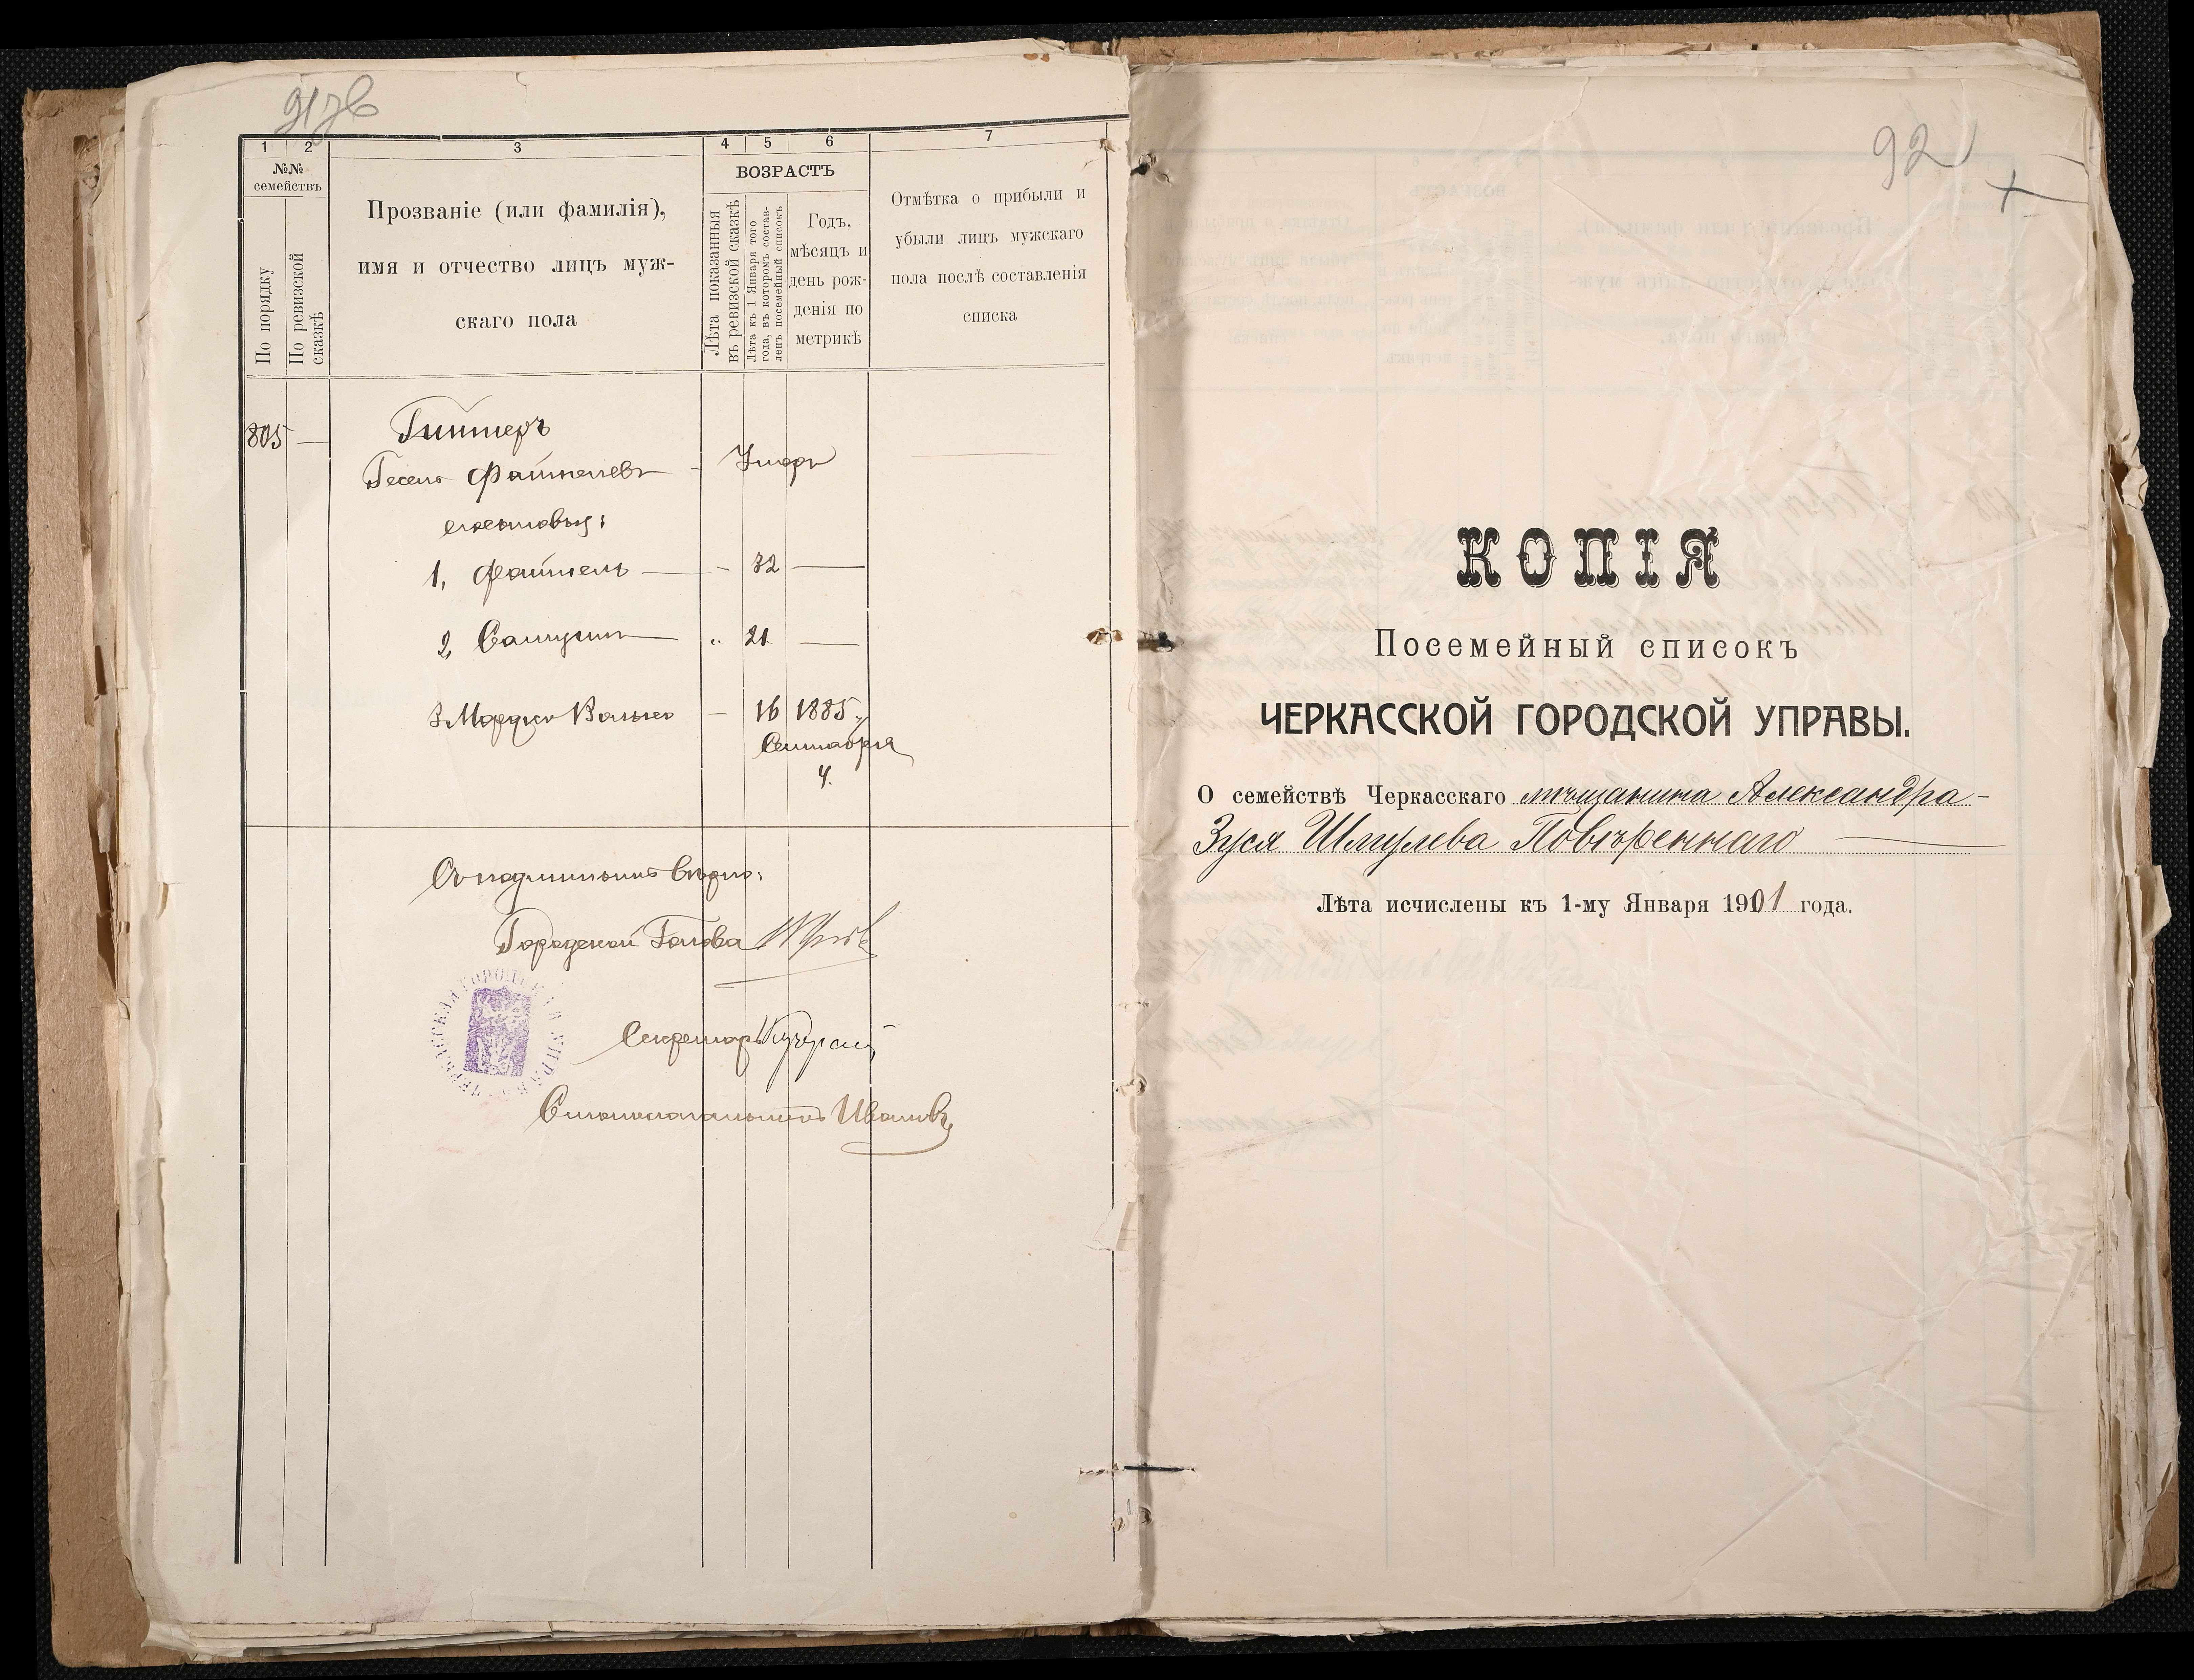 91 зв
1 2 3 4 5 6 7
№№ семействъ
По порядку
По ревизской сказкѣ
Прозваніе (или фамилія),
имя и отчество лицъ муж-
скаго пола
ВОЗРАСТЪ
Лѣта показанныя
въ ревизской сказкѣ
Лѣта къ 1 Января того
года, въ которомъ состав-
ленъ посемейный списокъ
Годъ,
мѣсяцъ и
день рож-
денія по
метрикѣ
Отмѣтка о прибыли и
убыли лицъ мужскаго
пола послѣ составленія
списка
805 —
Гесель Файтелевъ — Умеръ
сыновья:
1, Файтель — - 32 —
2, Самуилъ — „ 21 —
3 Мордко Волько — 16 1885
Сентября
4.
Съ подлиннымъ вѣрно:
Городской Голова
ЧЕРКАССКАЯ ГОРОДСКАЯ УПРАВА
Секретарь
Столоначальникъ Ивановъ
92
КОПІЯ
Посемейный списокъ
ЧЕРКАССКОЙ ГОРОДСКОЙ УПРАВЫ.
О семействѣ Черкасскаго мѣщанина Александра-
Зуся Шмулева Повѣреннаго
Лѣта исчислены къ 1-му Января 1901 года.